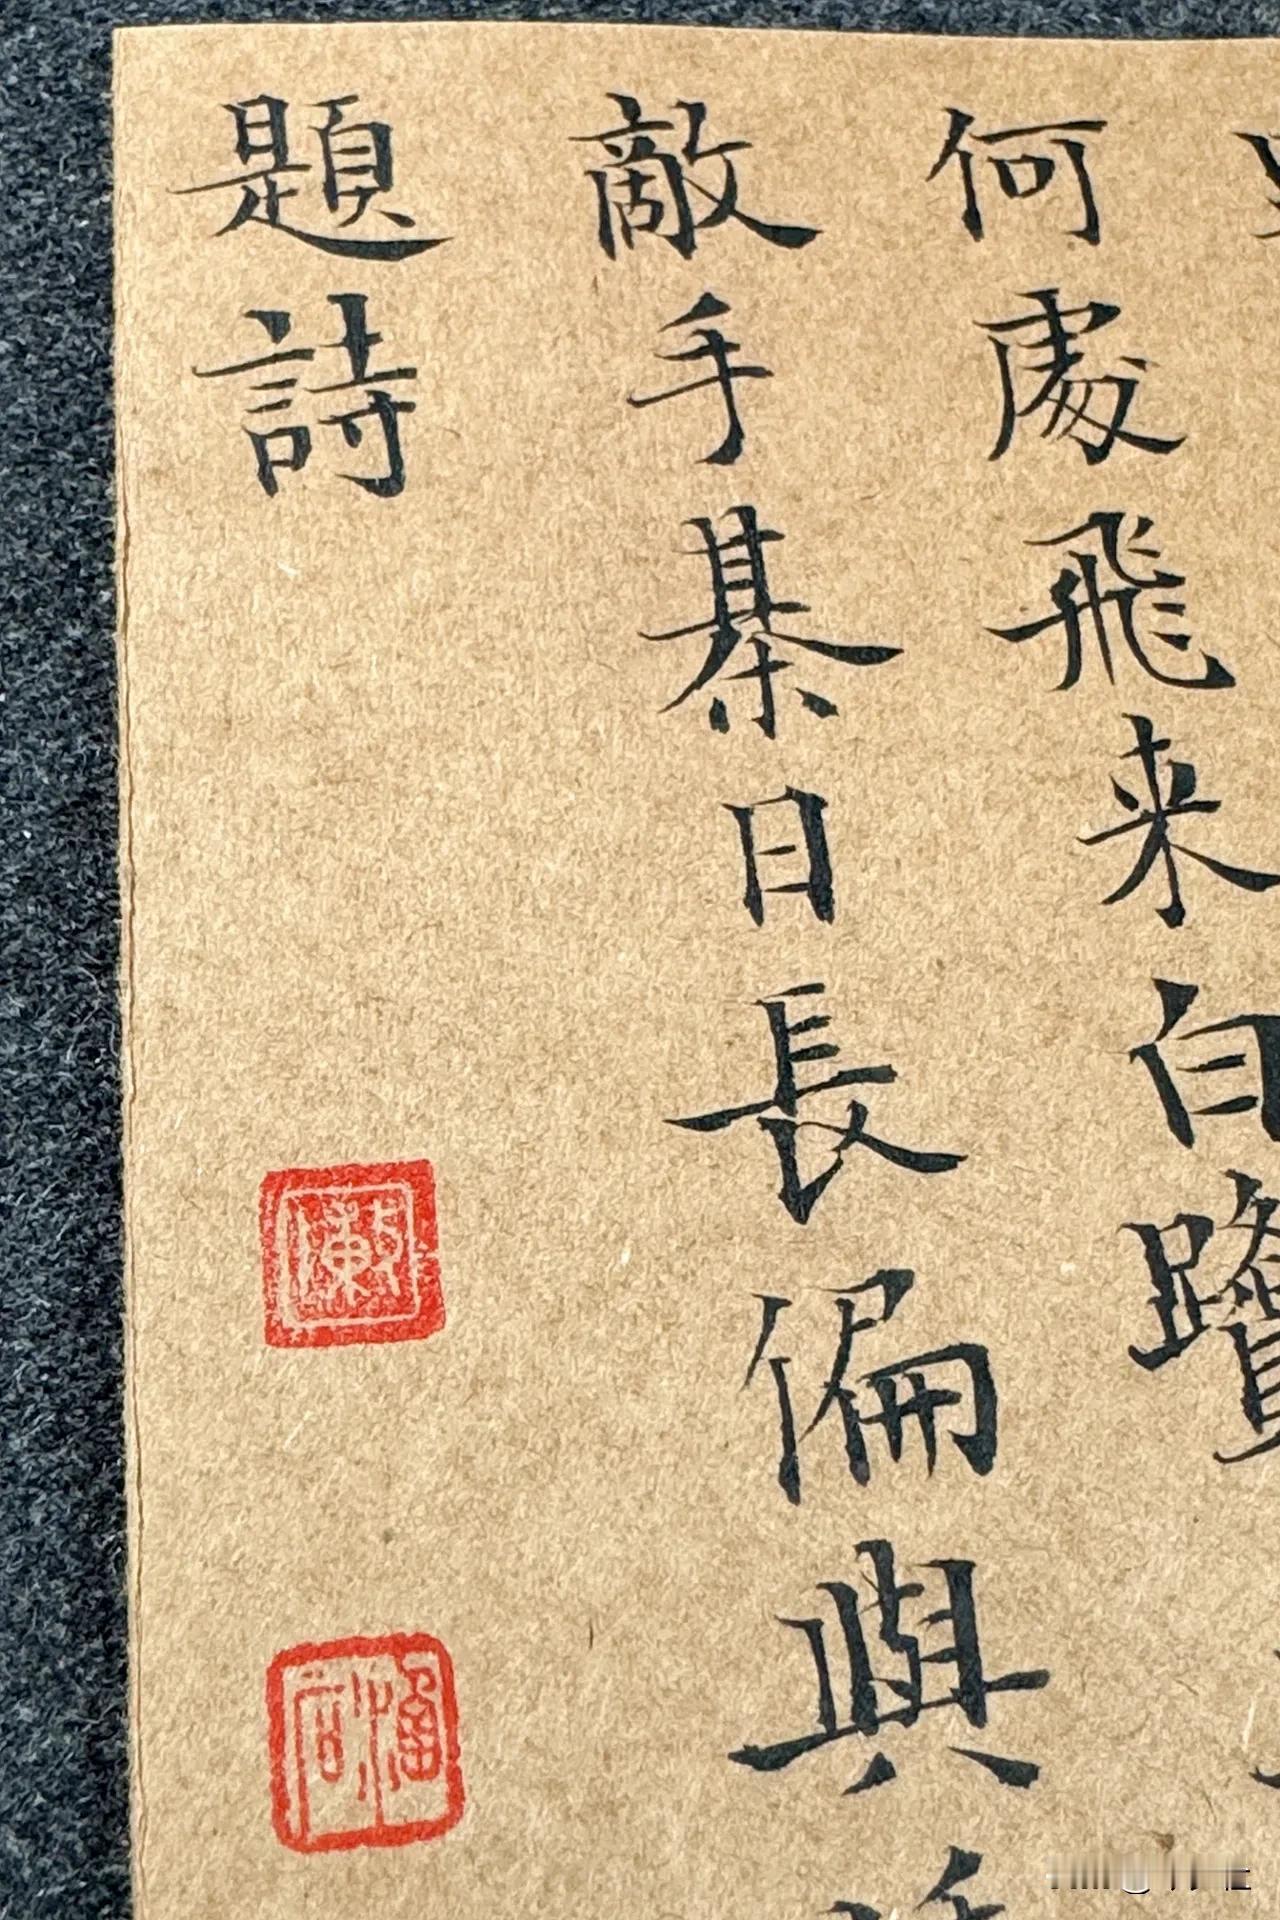 何處飛来白鷺
敵手綦日長偏與
題詩